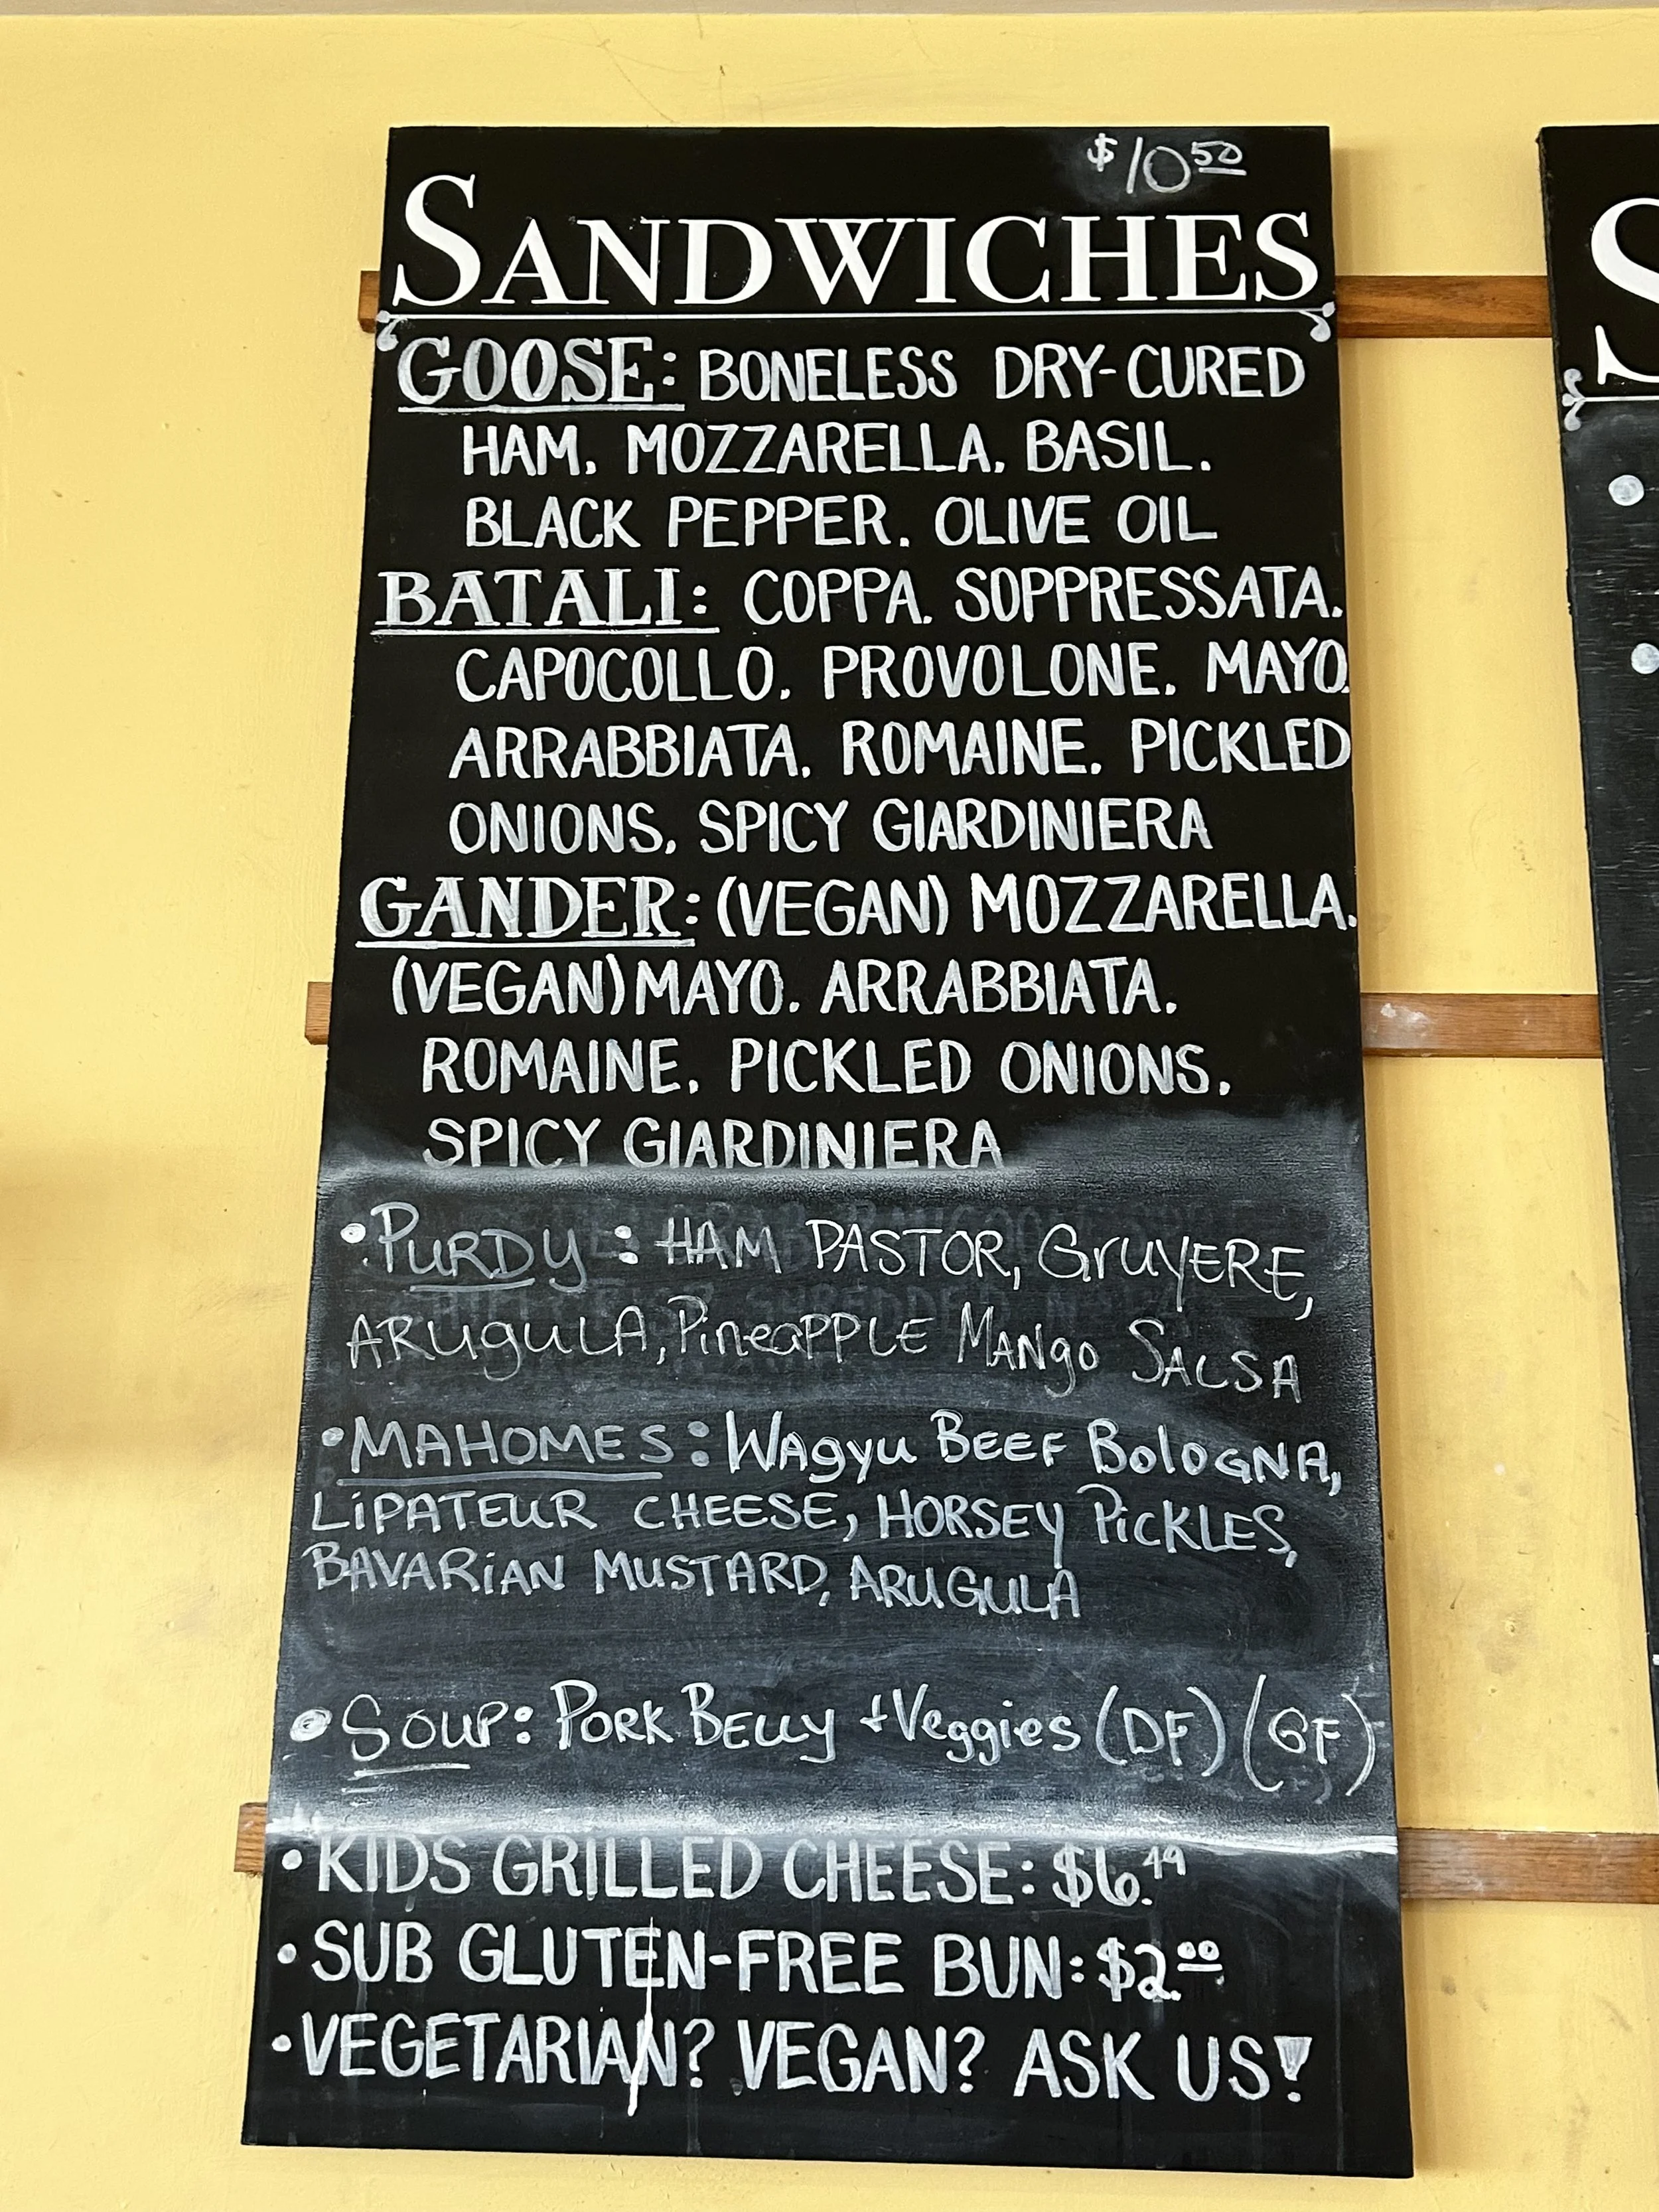 $10 50
SANDWICHES
GOOSE: BONELESS DRY-CURED
HAM. MOZZARELLA. BASIL.
BLACK PEPPER. OLIVE OIL
BATALI: COPPA. SOPPRESSATA.
CAPOCOLLO. PROVOLONE. MAYO.
ARRABBIATA. ROMAINE. PICKLED
ONIONS. SPICY GIARDINIERA
GANDER: (VEGAN) MOZZARELLA.
(VEGAN) MAYO. ARRABBIATA.
ROMAINE. PICKLED ONIONS.
SPICY GIARDINIERA
• PURDY: HAM PASTOR, GRUYERE,
ARUGULA, PINEAPPLE MANGO SALSA
• MAHOMES: WAGYU BEEF BOLOGNA,
LIPATEUR CHEESE, HORSEY PICKLES,
BAVARIAN MUSTARD, ARUGULA
• SOUP: PORK BELLY + Veggies (DF) (GF)
• KIDS GRILLED CHEESE: $6.49
• SUB GLUTEN-FREE BUN: $2.00
• VEGETARIAN? VEGAN? ASK US!
S